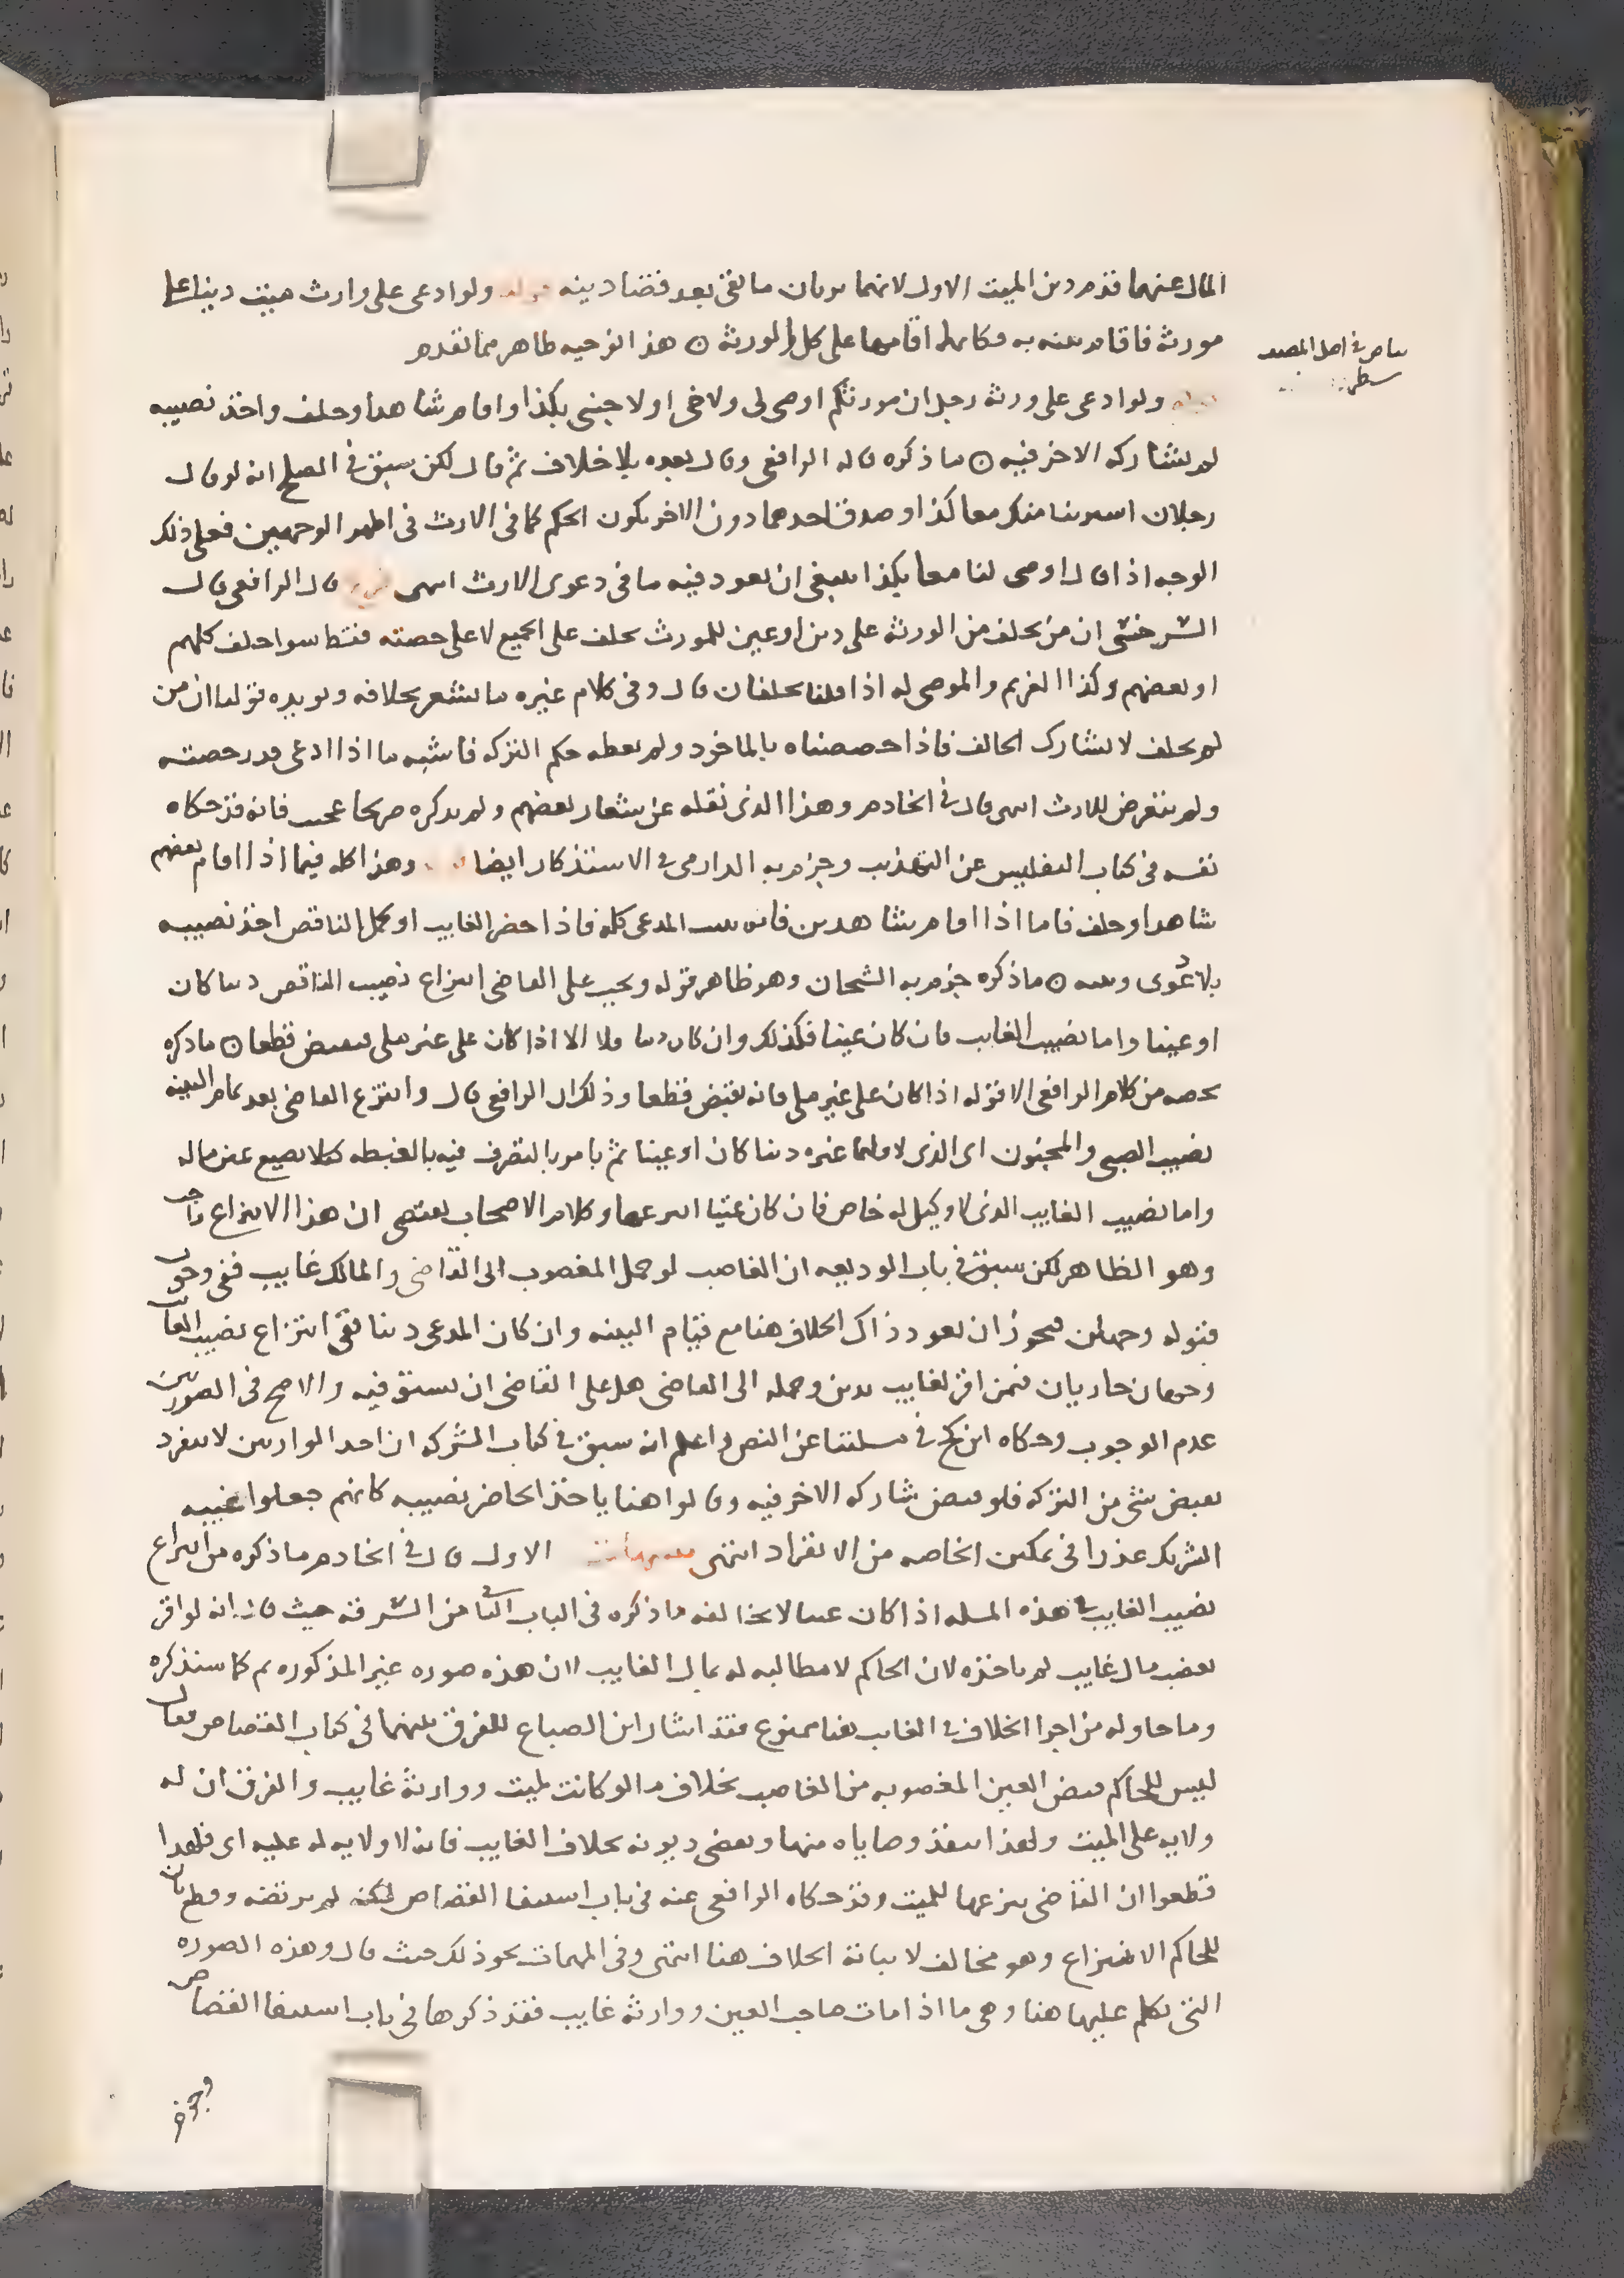 المال عنهما قدم دين الميت الاول لانهما يرثان ما بقي بعد قضا دينه قوله ولو ادعى على وارث ميت دينا على
مورثه فاقام بينه به فكانما اقامها على كل الورثة ٥ هذا التوجيه ظاهر مما تقدم
بياض في اصل المصنف
سطر
قوله ولو ادعى على ورثة رجل ان مورثكم اوصى لى ولاخى او لاجنبى بكذا واقام شاهدا وحلف واخذ نصيبه
لم يشاركه الاخر فيه ٥ ما ذكره قاله الرافعى وقال بعده بلا خلاف ثم قال لكن سبق في الصلح انه لو قال
رجلان اشترينا منك معا كذا وصدق احدهما دون الاخر يكون الحكم كما فى الارث فى اظهر الوجهين فعلى ذلك
الوجه اذا قال اوصى لنا معا بكذا ينبغى ان يعود فيه ما فى دعوى الارث انتهى قال الرافعى قال
السرخسى ان من يحلف من الورثة على دين او عين للمورث يحلف على الجميع لا على حصته فقط سوا حلف كلهم
او بعضهم وكذا الغريم والموصى له اذا قلنا يحلفان قال وفى كلام غيره ما يشعر بخلافه ويويده قولنا ان من
لم يحلف لا يشارك الحالف فاذا خصصناه بالماخوذ ولم نعطه حكم التركه فاشبه ما اذا ادعى قدر حصته
ولم يتعرض للارث انتهى قال في الخادم وهذا الذى نقله عن اشعار بعضهم ولم يذكره صريحا عجيب فانه قد حكاه
نفسه فى كتاب التفليس عن التهذيب وجزم به الدارمى في الاستذكار ايضا وهذا كله فيما اذا اقام بعضهم
شاهدا وحلف فاما اذا اقام شاهدين فانه يثبت المدعى كله فاذا حضر الغايب او كمل الناقص اخذ نصيبه
بلا دعوى وبينه ٥ ما ذكره جزم به الشيخان وهو ظاهر قوله ويجب على القاضى انتزاع نصيب الناقص دينا كان
او عينا واما نصيب الغايب فان كان عينا فكذلك وان كان دينا فلا الا اذا كان على غير ملى فيقبض قطعا ٥ ما ذكره
لخصه من كلام الرافعى الا قوله اذا كان على غير ملى فانه يقبض قطعا وذلك ان الرافعى قال وانتزع القاضى بعد تمام البينه
نصيب الصبى والمجنون اى الذى لا ولى لهما غيره دينا كان او عينا ثم يامر بالتصرف فيه بالغبطه كيلا يضيع عين ماله
واما نصيب الغايب الذى لا وكيل له خاص فان كان عينا انتزعها وكلام الاصحاب يقتضى ان هذا الانتزاع واجب
وهو الظاهر لكن سبق في باب الوديعه ان الغاصب لو حمل المغصوب الى القاضى والمالك غايب ففى وجوب
قبوله وجهان فيجوز ان يعود ذاك الخلاف هنا مع قيام البينه وان كان المدعى دينا ففى انتزاع نصيب الغايب
وجهان جاريان فيمن اقر لغايب بدين وحمله الى القاضى هل على القاضى ان يستوفيه والاصح فى الصورتين
عدم الوجوب وحكاه ابن كج في مسلتنا عن النص واعلم انه سبق في كتاب الشركه ان احد الوارثين لا ينفرد
بقبض شى من التركه فلو قبض شاركه الاخر فيه وقالوا هنا ياخذ الحاضر نصيبه كانهم جعلوا غيبه
الشريك عذرا فى تمكين الحاضر من الانفراد انتهى تنبيهات الاول قال في الخادم ما ذكره من انتزاع
نصيب الغايب في هذه المسله اذا كان عينا لا يخالفه ما ذكره فى الباب الثانى من السرقه حيث قال انه لو اقر
بغصب مال غايب لم ياخذه لان الحاكم لا مطالبه له بمال الغايب لان هذه صوره غير المذكوره ثم كما سنذكره
وما حاوله من اجرا الخلاف في الغايب هنا ممنوع فقد اشار ابن الصباغ للفرق بينهما في كتاب القصاص فقال
ليس للحاكم قبض العين المغصوبه من الغاصب بخلاف ما لو كانت لميت ووارثه غايب والفرق ان له
ولايه على الميت ولهذا تنفذ وصاياه منها ويقضى ديونه بخلاف الغايب فانه لا ولايه له عليه اى فلهذا
قطعوا ان القاضى ينزعها للميت وقد حكاه الرافعى عنه فى باب استيفا القصاص لكنه لم يرتضه وقطع بان
للحاكم الانتزاع وهو مخالف لاثباته الخلاف هنا انتهى وفى المهمات نحو ذلك حيث قال وهذه الصوره
التى تكلم عليها هنا وهى ما اذا مات صاحب العين ووارثه غايب فقد ذكرها فى باب استيفا القصاص
وجزم